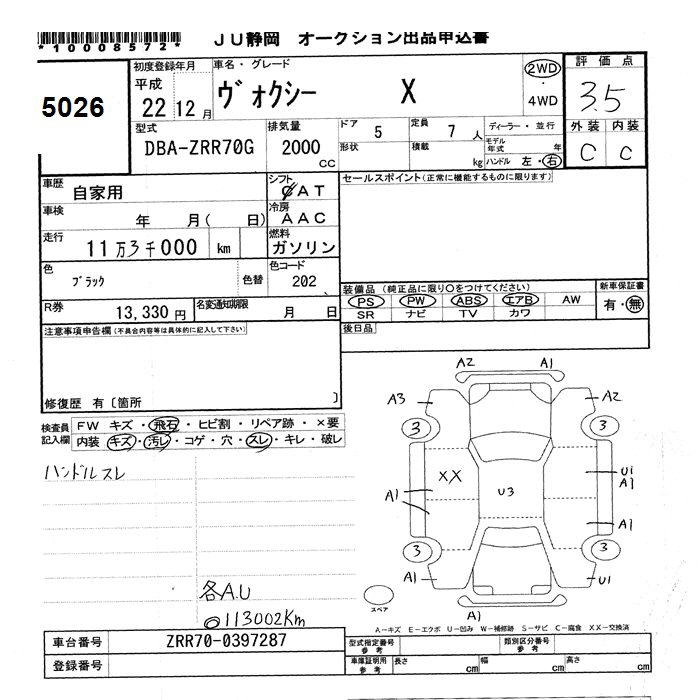 *10008572*
JU静岡 オークション出品申込書
5026
初度登録年月 車名・グレード 2WD ・ 4WD 評価点
平成 22 12月 ヴォクシー X 3.5
型式 排気量 ドア 5 定員 7 人 ディーラー・並行 外装 内装
DBA-ZRR70G 2000 CC 形状 積載 kg モデル年式 年 ハンドル 左・右 C C
車歴 自家用 シフト CAT セールスポイント(正常に機能するものに限ります)
車検 年 月( 日) 冷房 AAC
走行 11万3千000 km 燃料 ガソリン
色 ブラック 色替 色コード 202
装備品(純正品に限り〇をつけてください) 新車保証書
PS PW ABS エアB AW 有・無
SR ナビ TV カワ
R券 13,330円 名変通知期限 月 日
後日品
注意事項申告欄(不具合内容等は具体的に記入して下さい)
修復歴 有〔箇所 〕
検査員記入欄 FW キズ・飛石・ヒビ割・リペア跡・×要
内装 キズ・汚レ・コゲ・穴・スレ・キレ・破レ
ハンドルスレ
各A.U
113002Km
A2 A1
A3 A2
3 3
XX U3 U1 A1
A1 A1
3 3
A1 U1
スペア A1
A-キズ E-エクボ U-凹み W-補修跡 S-サビ C-腐食 XX-交換済
車台番号 ZRR70-0397287 型式指定番号 参考 類別区分番号 参考
登録番号 車庫証明用 参考 長さ cm 幅 cm 高さ cm